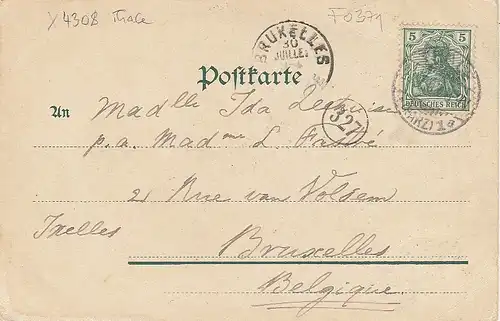 y 4308 Thale
F0371
BRUXELLES
30
JUILLET
5 5
DEUTSCHES REICH
(HARZ) 1a
Postkarte
An Mad lle Ida
327
p.a. Mad me L.
21 Rue van Volsem
Ixelles
Bruxelles
Belgique